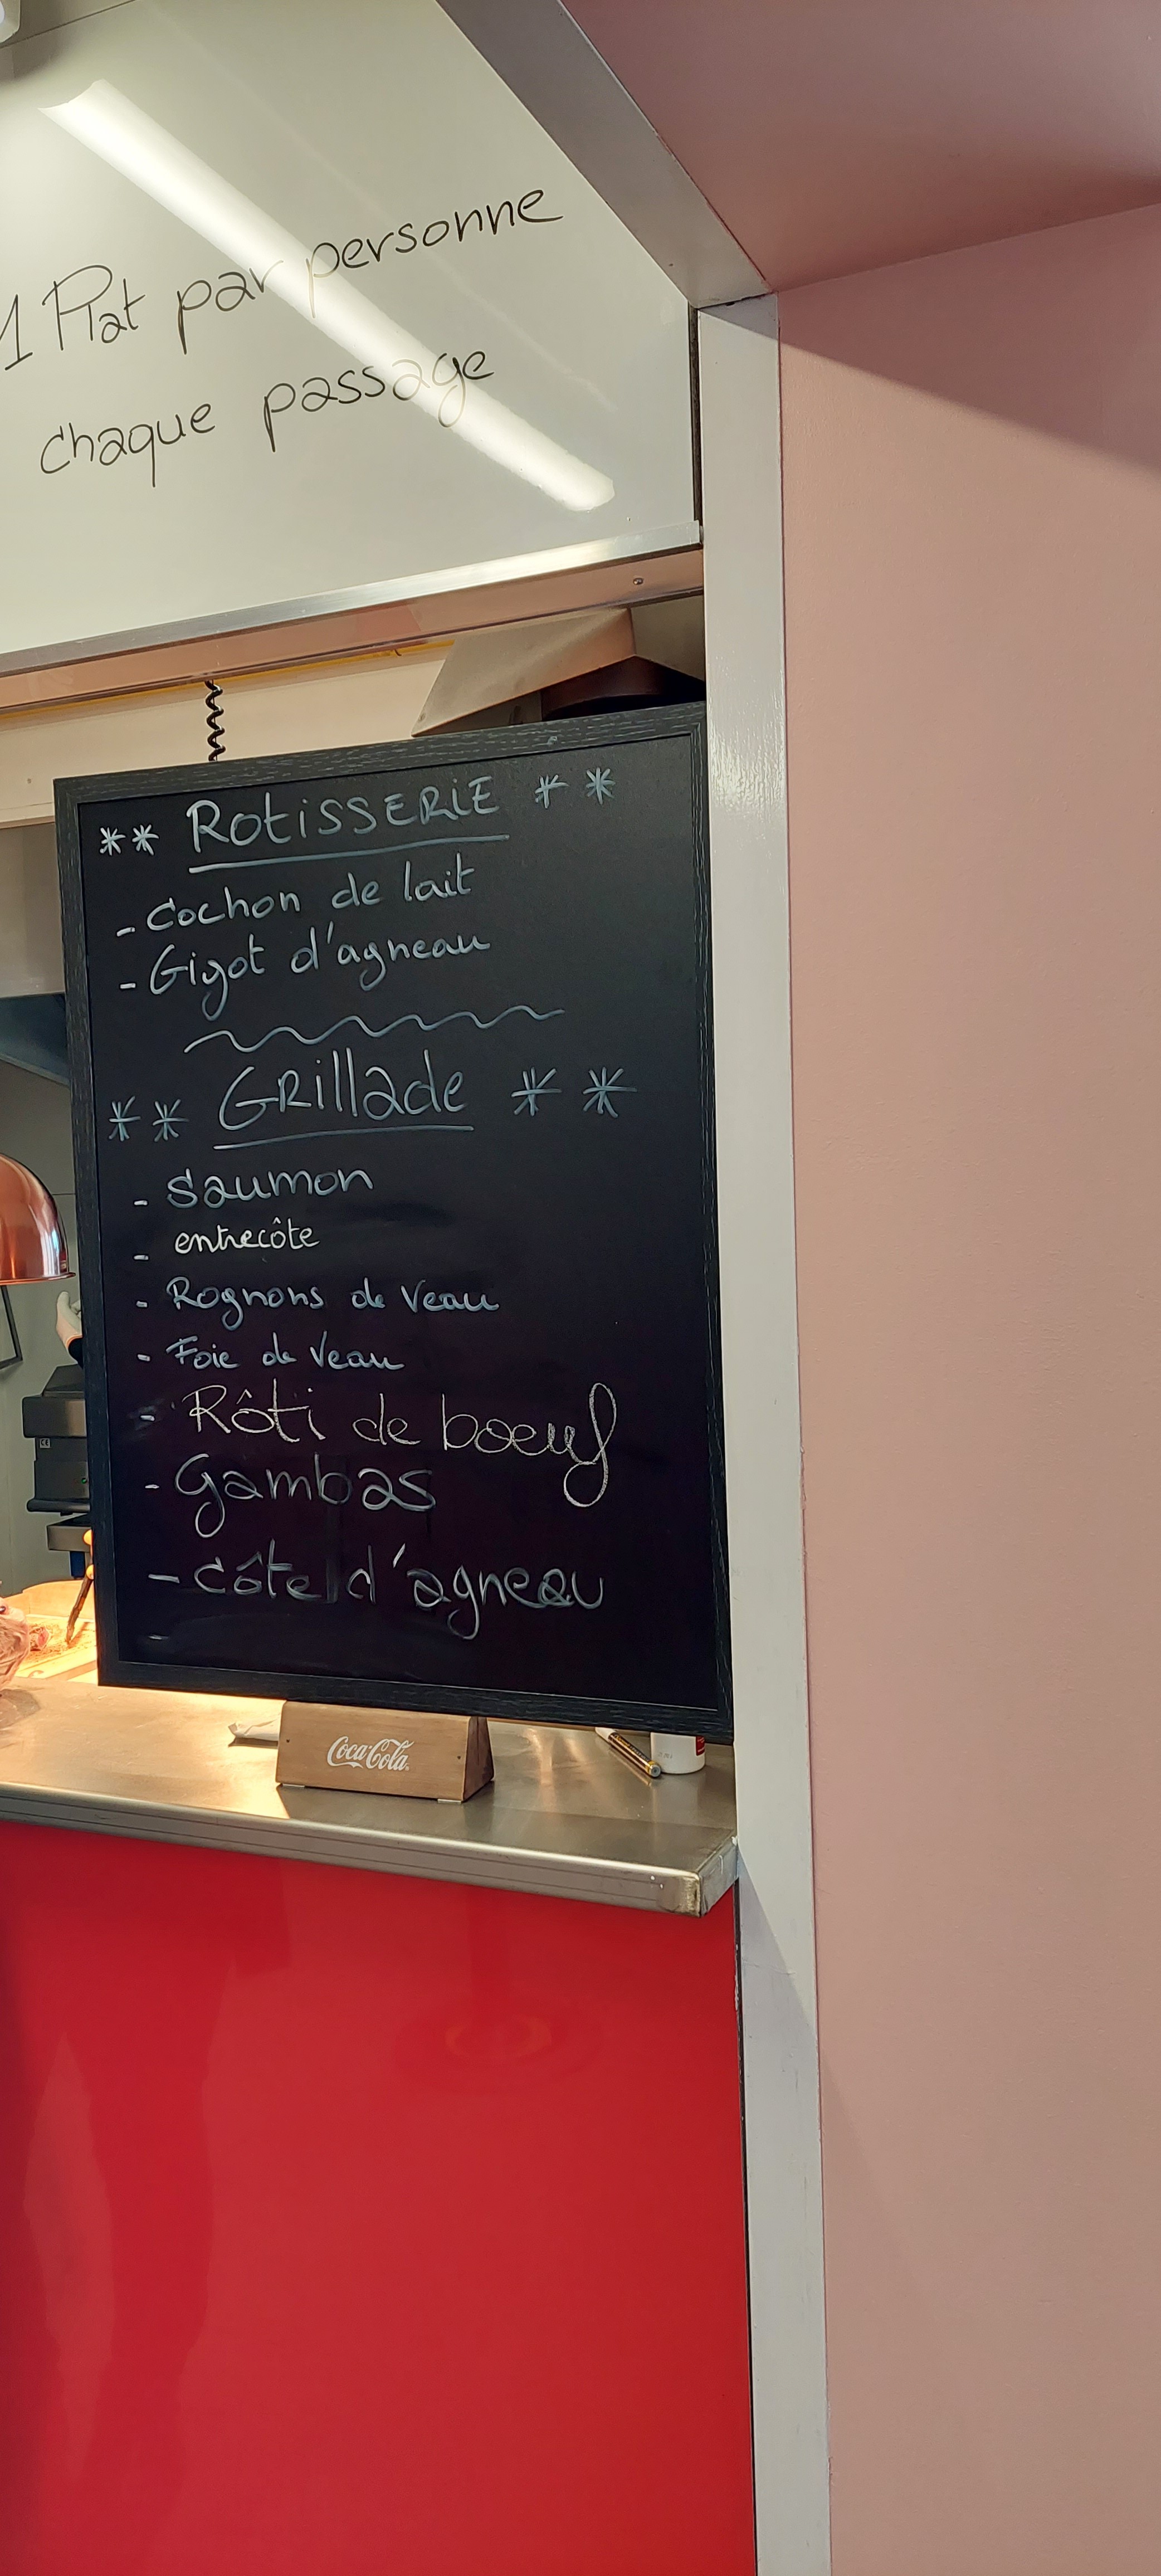 1 Plat par personne
chaque passage
** RotiSSERiE **
- Cochon de lait
- Gigot d'agneau
** GRillade **
- Saumon
- entrecôte
- Rognons de Veau
- Foie de Veau
- Rôti de boeuf
- Gambas
- Côte d'agneau
-
Coca-Cola